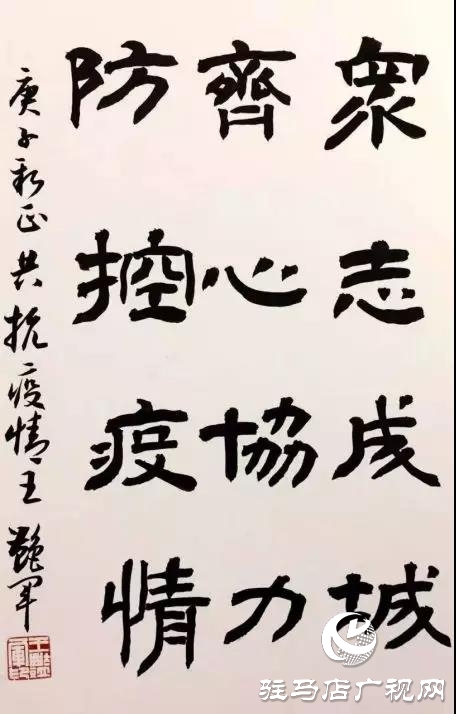 眾志成城
齊心協力
防控疫情
庚子新正共抗疫情王艷军
驻马店广视网